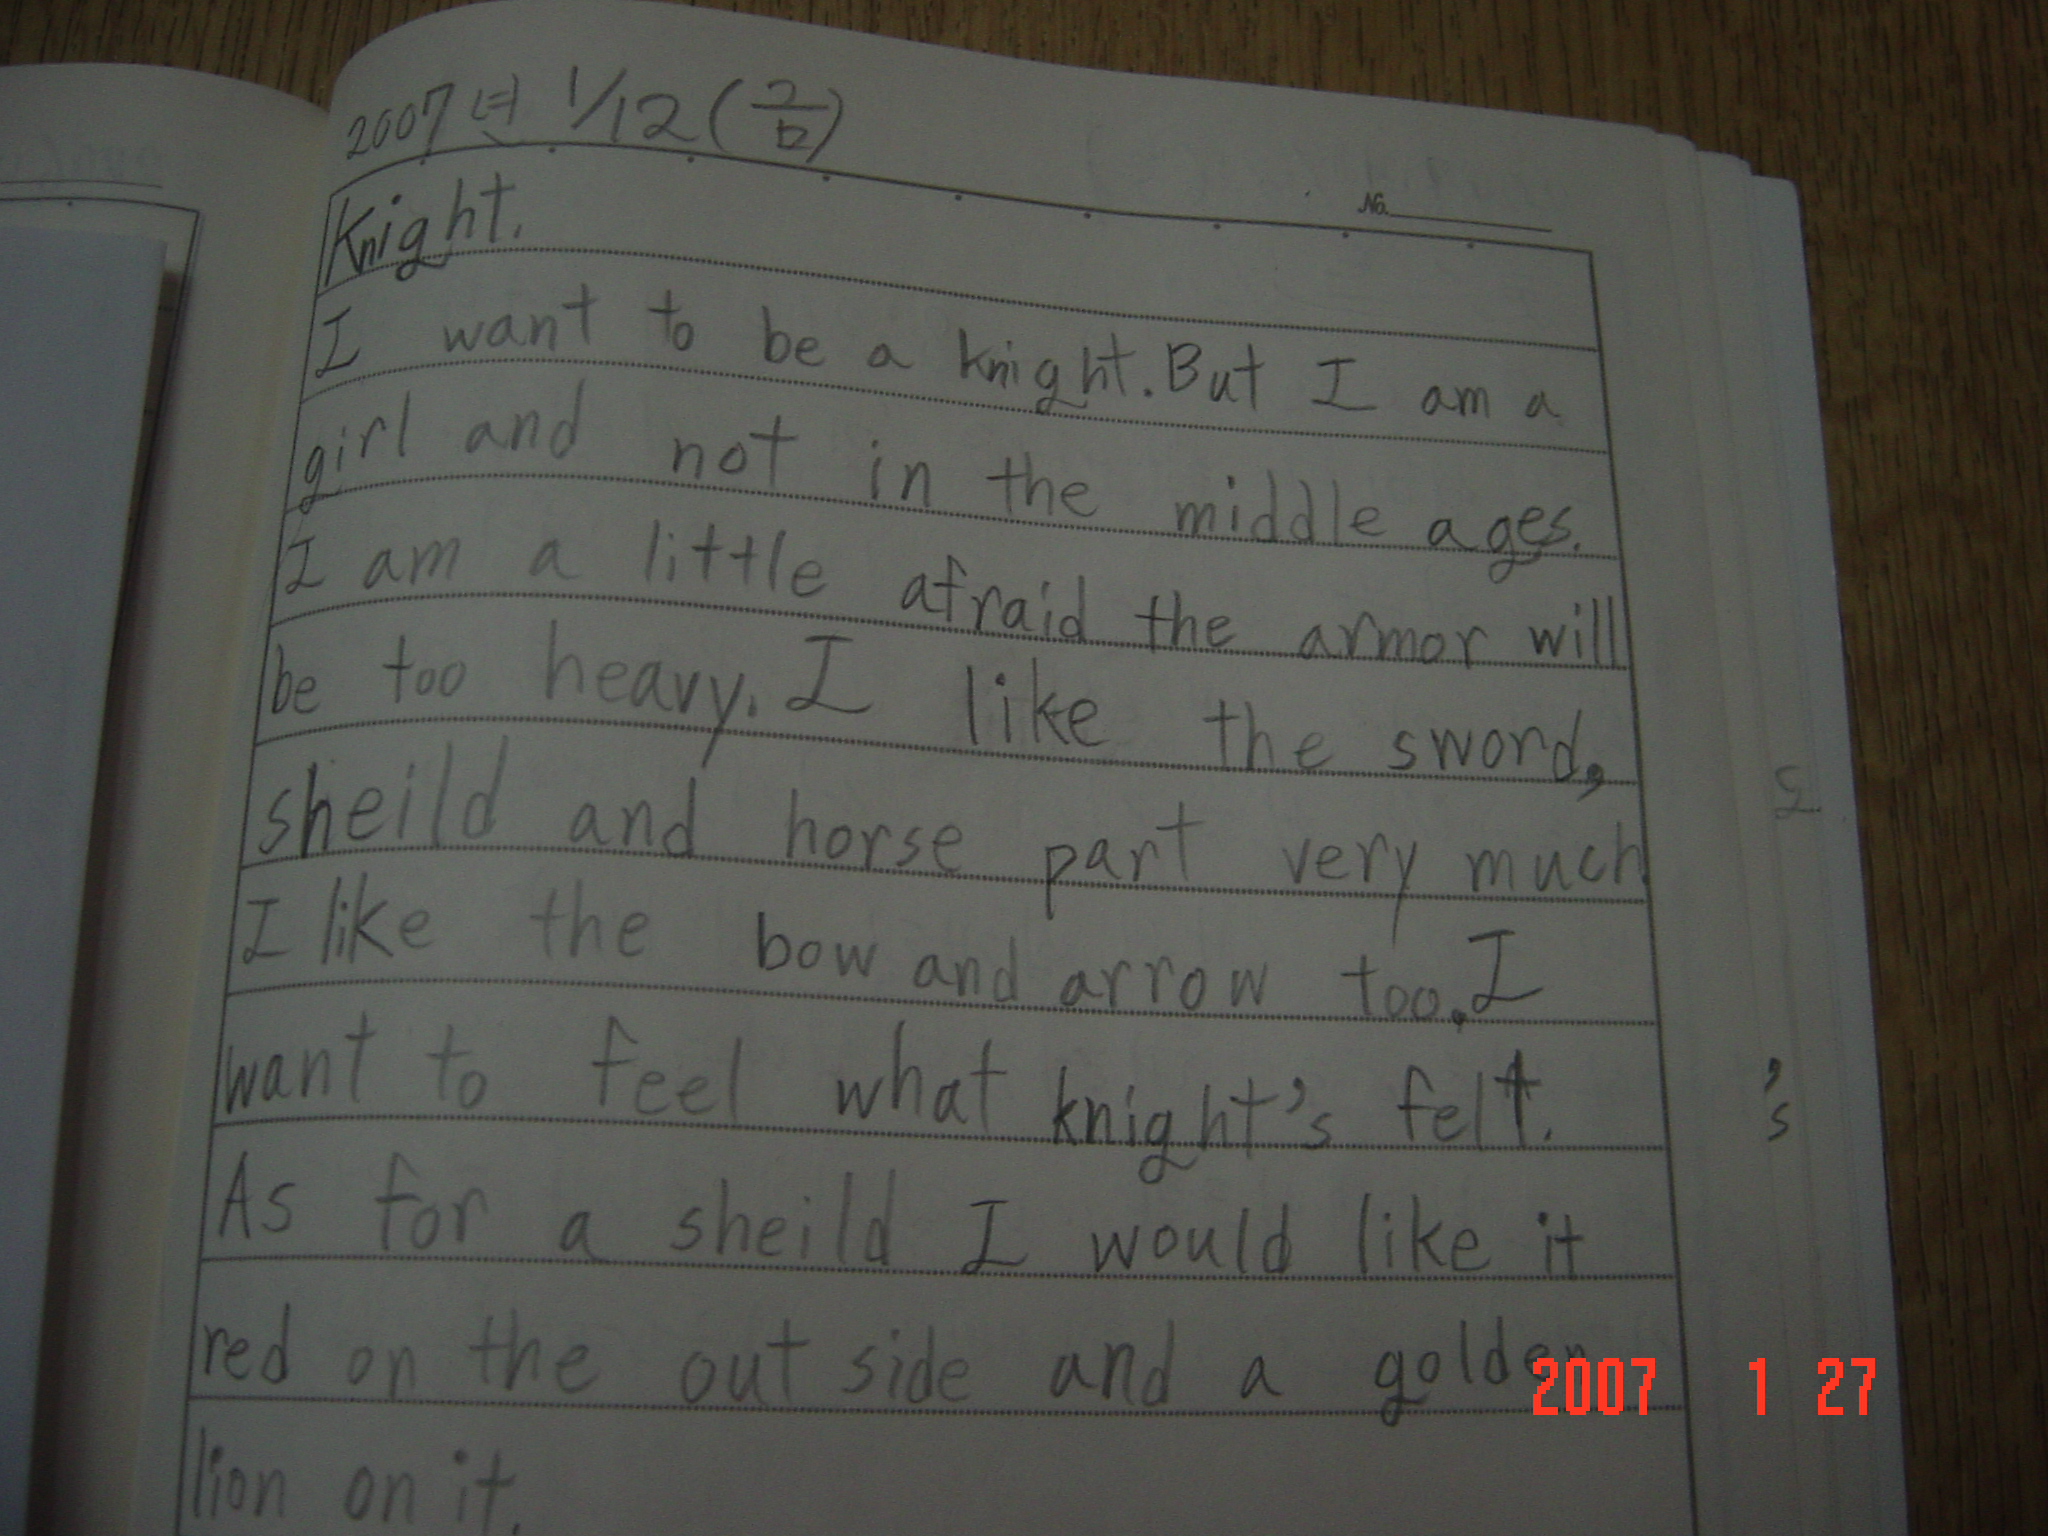 2007년 1/12 (금)
No.
Knight.
I want to be a knight. But I am a
girl and not in the middle ages.
I am a little afraid the armor will
be too heavy. I like the sword,
sheild and horse part very much
I like the bow and arrow too. I
want to feel what knight's felt.
's
As for a sheild I would like it
red on the out side and a golden
lion on it.
2007 1 27